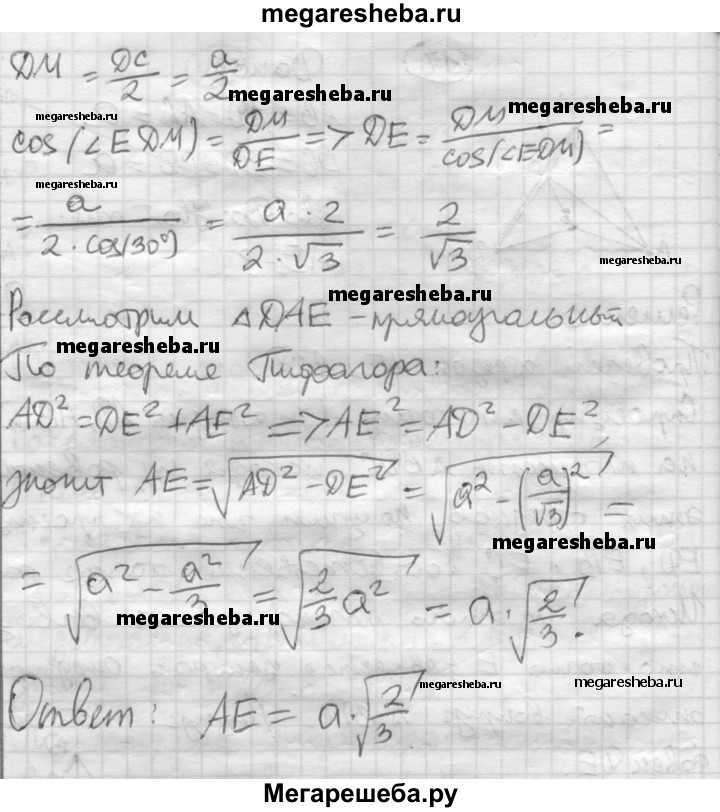 megaresheba.ru
DM = DC/2 = a/2
megaresheba.ru
megaresheba.ru
megaresheba.ru
cos(∠EDM) = DM/DE => DE = DM/cos(∠EDM) =
megaresheba.ru
= a/(2·cos(30°)) = a·2/(2·√3) = 2/√3
megaresheba.ru
megaresheba.ru
Рассмотрим △DAE – прямоугольный
megaresheba.ru
По теореме Пифагора:
AD² = DE² + AE² => AE² = AD² - DE²
значит AE = √(AD² - DE²) = √(a² - (a/√3)²) =
megaresheba.ru
= √(a² - a²/3) = √(2/3 a²) = a·√(2/3).
megaresheba.ru
megaresheba.ru
megaresheba.ru
Ответ: AE = a·√(2/3)
Мегарешеба.ру